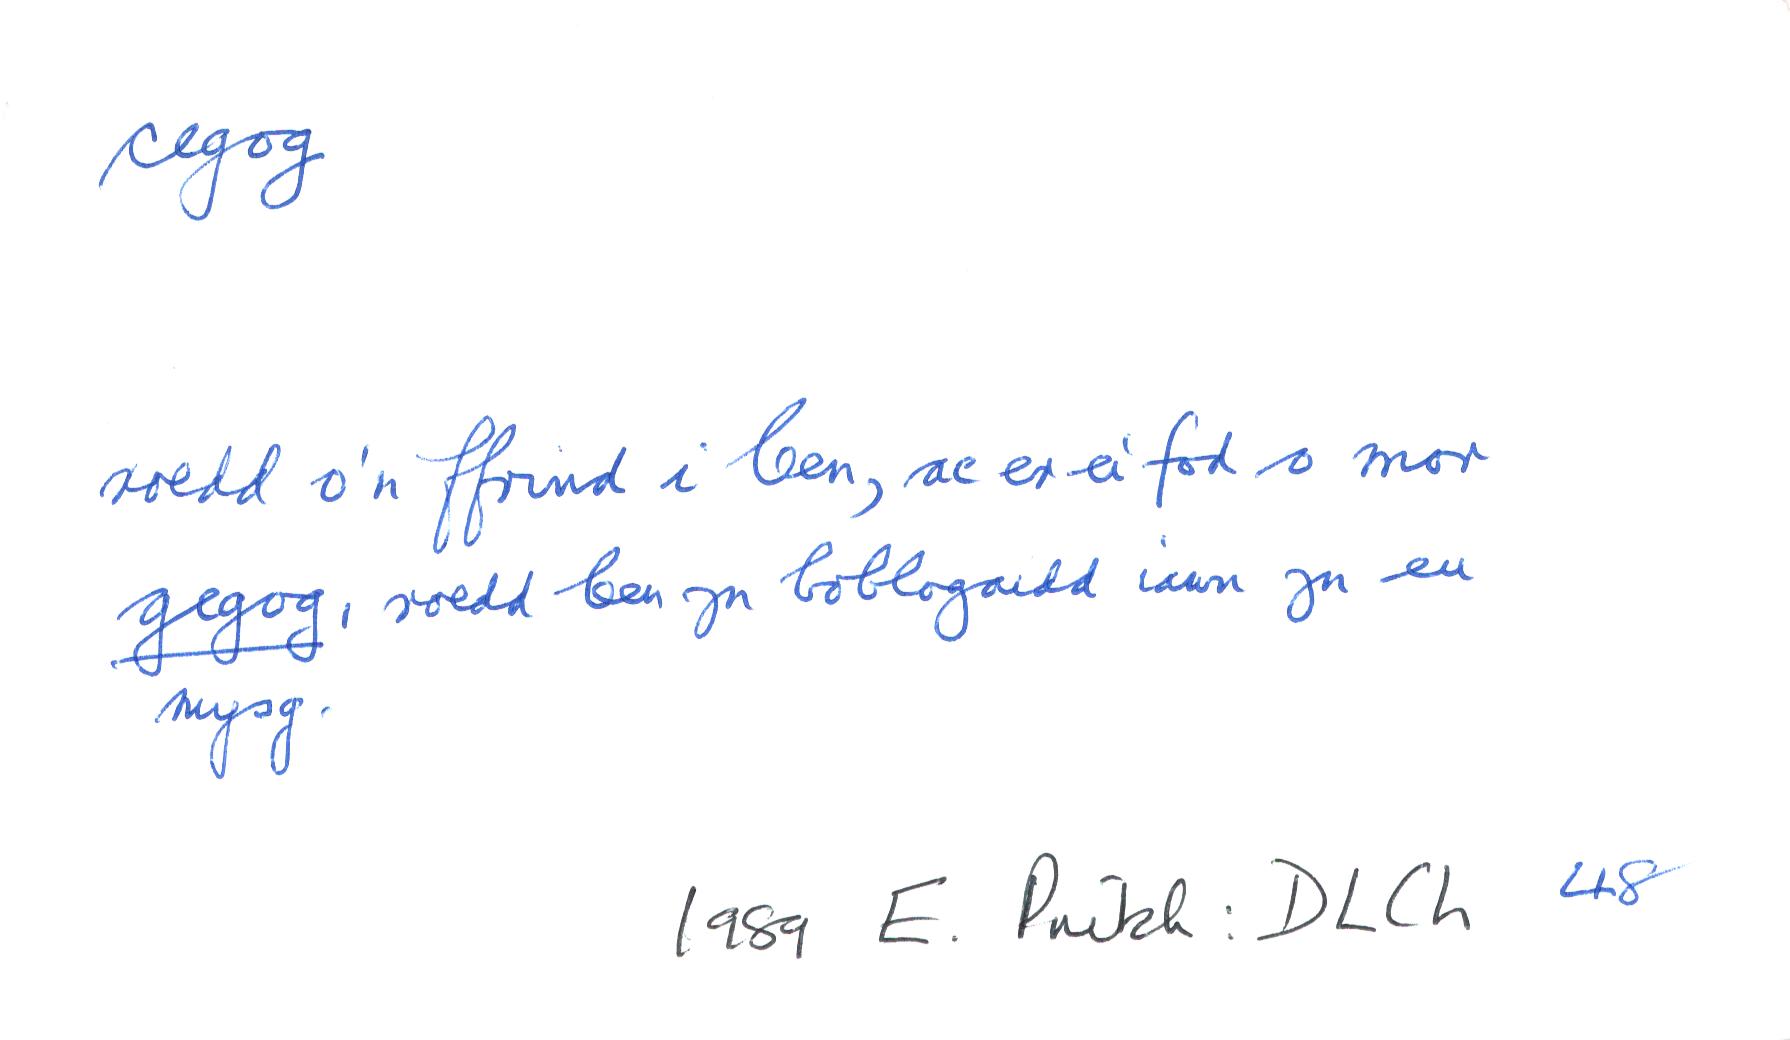 cegog
roedd o'n ffrind i Ben, ac er ei fod o mor
gegog, roedd Ben yn boblogaidd iawn yn eu
mysg.
1989 E. Pritch: DLCh 48